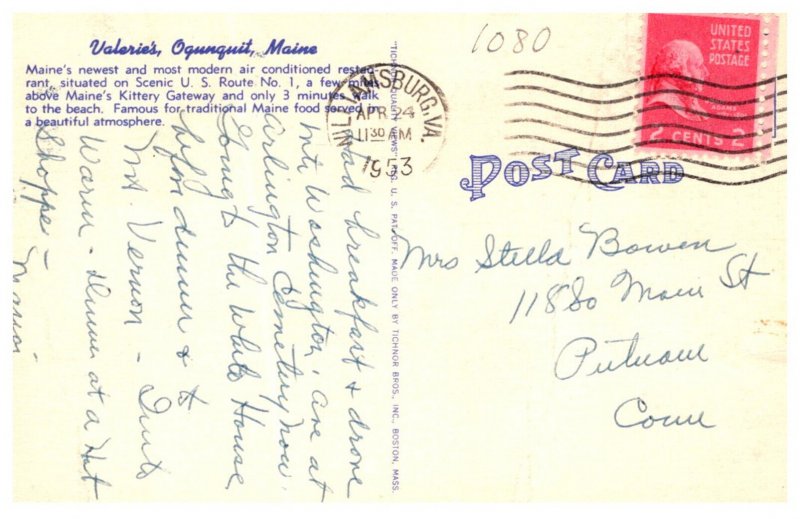 Valerie's, Ogunquit, Maine
Maine's newest and most modern air conditioned restau-
rant, situated on Scenic U. S. Route No. 1, a few miles
above Maine's Kittery Gateway and only 3 minutes walk
to the beach. Famous for traditional Maine food served in
a beautiful atmosphere.
Had breakfast & drove
into Washington, are at
Arlington Cemetery now.
Going to the White House
before dinner & to
Mt. Vernon - Quite
Warm - Dinner at a Hot
Shoppe -
"TICHNOR QUALITY VIEWS," REG. U. S. PAT. OFF. MADE ONLY BY TICHNOR BROS., INC., BOSTON, MASS.
1080
WILLIAMSBURG, VA.
APR 24
11 30 AM
1953
UNITED
STATES
POSTAGE
2 CENTS 2
POST CARD
Mrs Stella Bowen
11880 Main St
Putnam
Conn